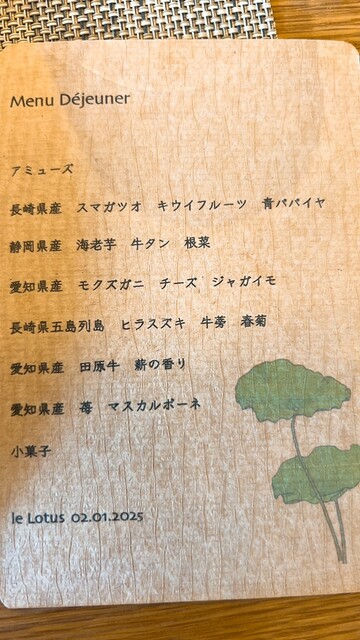 Menu Déjeuner
アミューズ
長崎県産 スマガツオ キウイフルーツ 青パパイヤ
静岡県産 海老芋 牛タン 根菜
愛知県産 モクズガニ チーズ ジャガイモ
長崎県五島列島 ヒラスズキ 牛蒡 春菊
愛知県産 田原牛 薪の香り
愛知県産 苺 マスカルポーネ
小菓子
le Lotus 02.01.2025